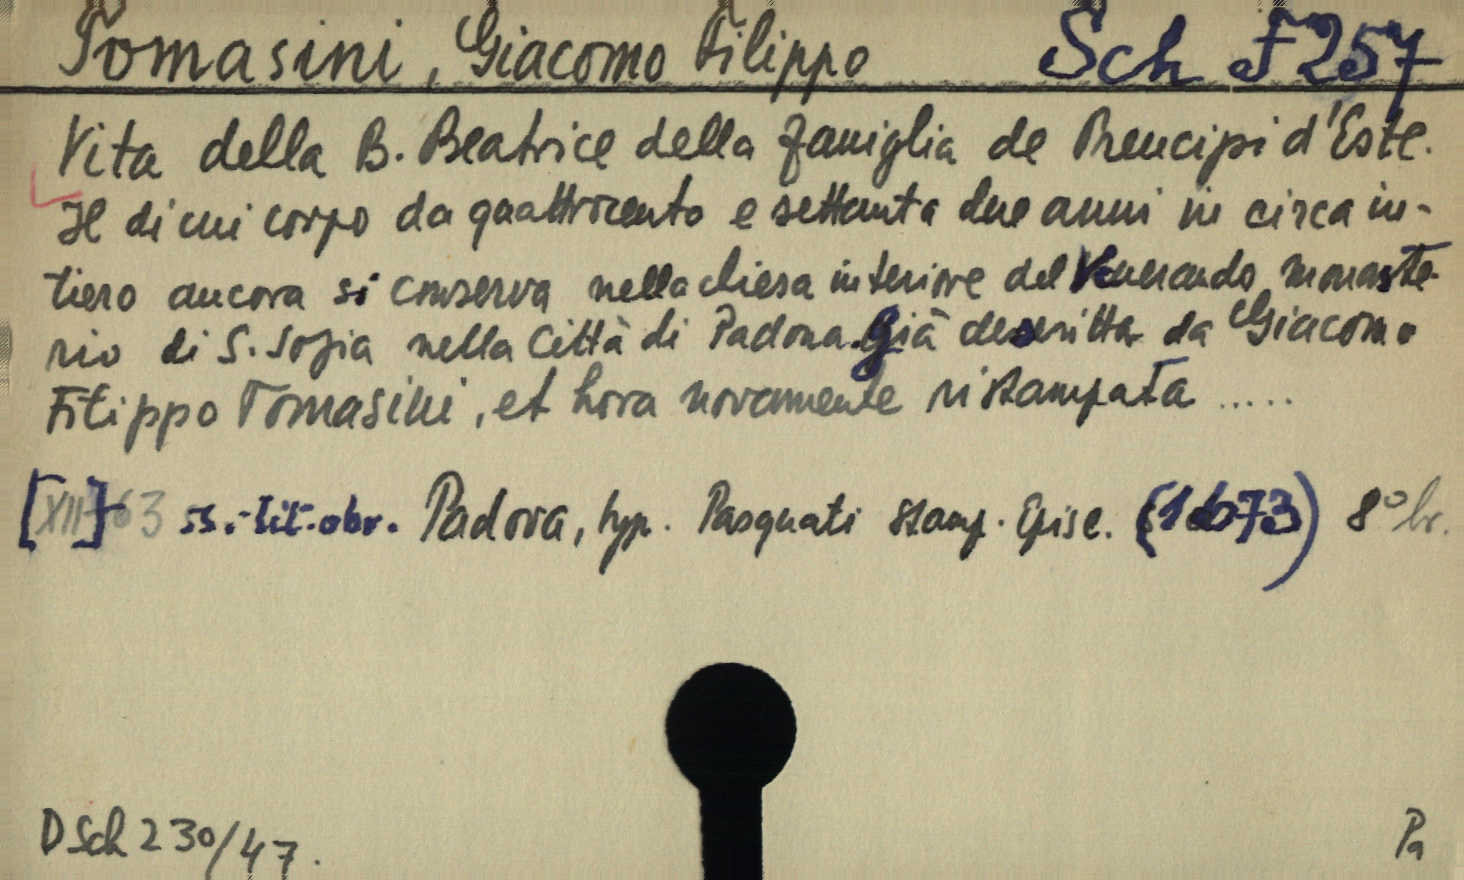 Tomasini, Giacomo Filippo Sch F 257
Vita della B. Beatrice della famiglia de Prencipi d'Este.
Il di cui corpo da quattrocento e settanta due anni in circa in-
tiero ancora si conserva nella chiesa interiore del Venerando monaste-
rio di S. Sofia nella Città di Padova. Già descritta da Giacomo
Filippo Tomasini, et hora novamente ristampata .....
[XII]+63 ss. - tit. obr. Padova, typ. Pasquati stamp. Episc. (1673) 8° br.
D Sch 230/47.
Pa